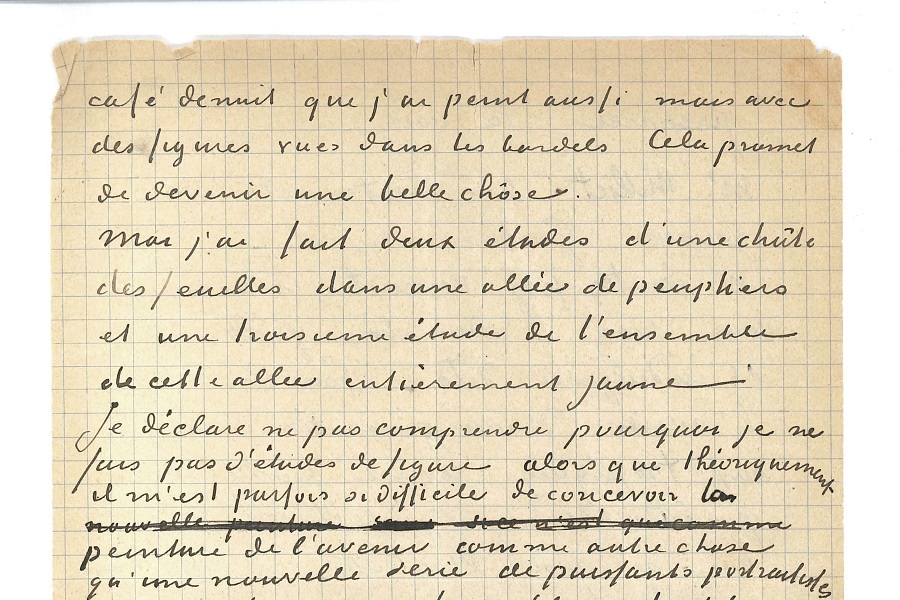 café de nuit que j'ai peint aussi mais avec
des figures vues dans les bordels Cela promet
de devenir une belle chôse.
Moi j'ai fait deux études d'une chûte
des feuilles dans une allée de peupliers
et une troisieme étude de l'ensemble
de cette allee entièrement jaune
Je déclare ne pas comprendre pourquoi je ne
fais pas d'études de figure alors que théoriquement
il m'est parfois si difficile de concevoir la
nouvelle peinture si ce n'est que comme
peinture de l'avenir comme autre chose
qu'une nouvelle serie de puissants portraitistes